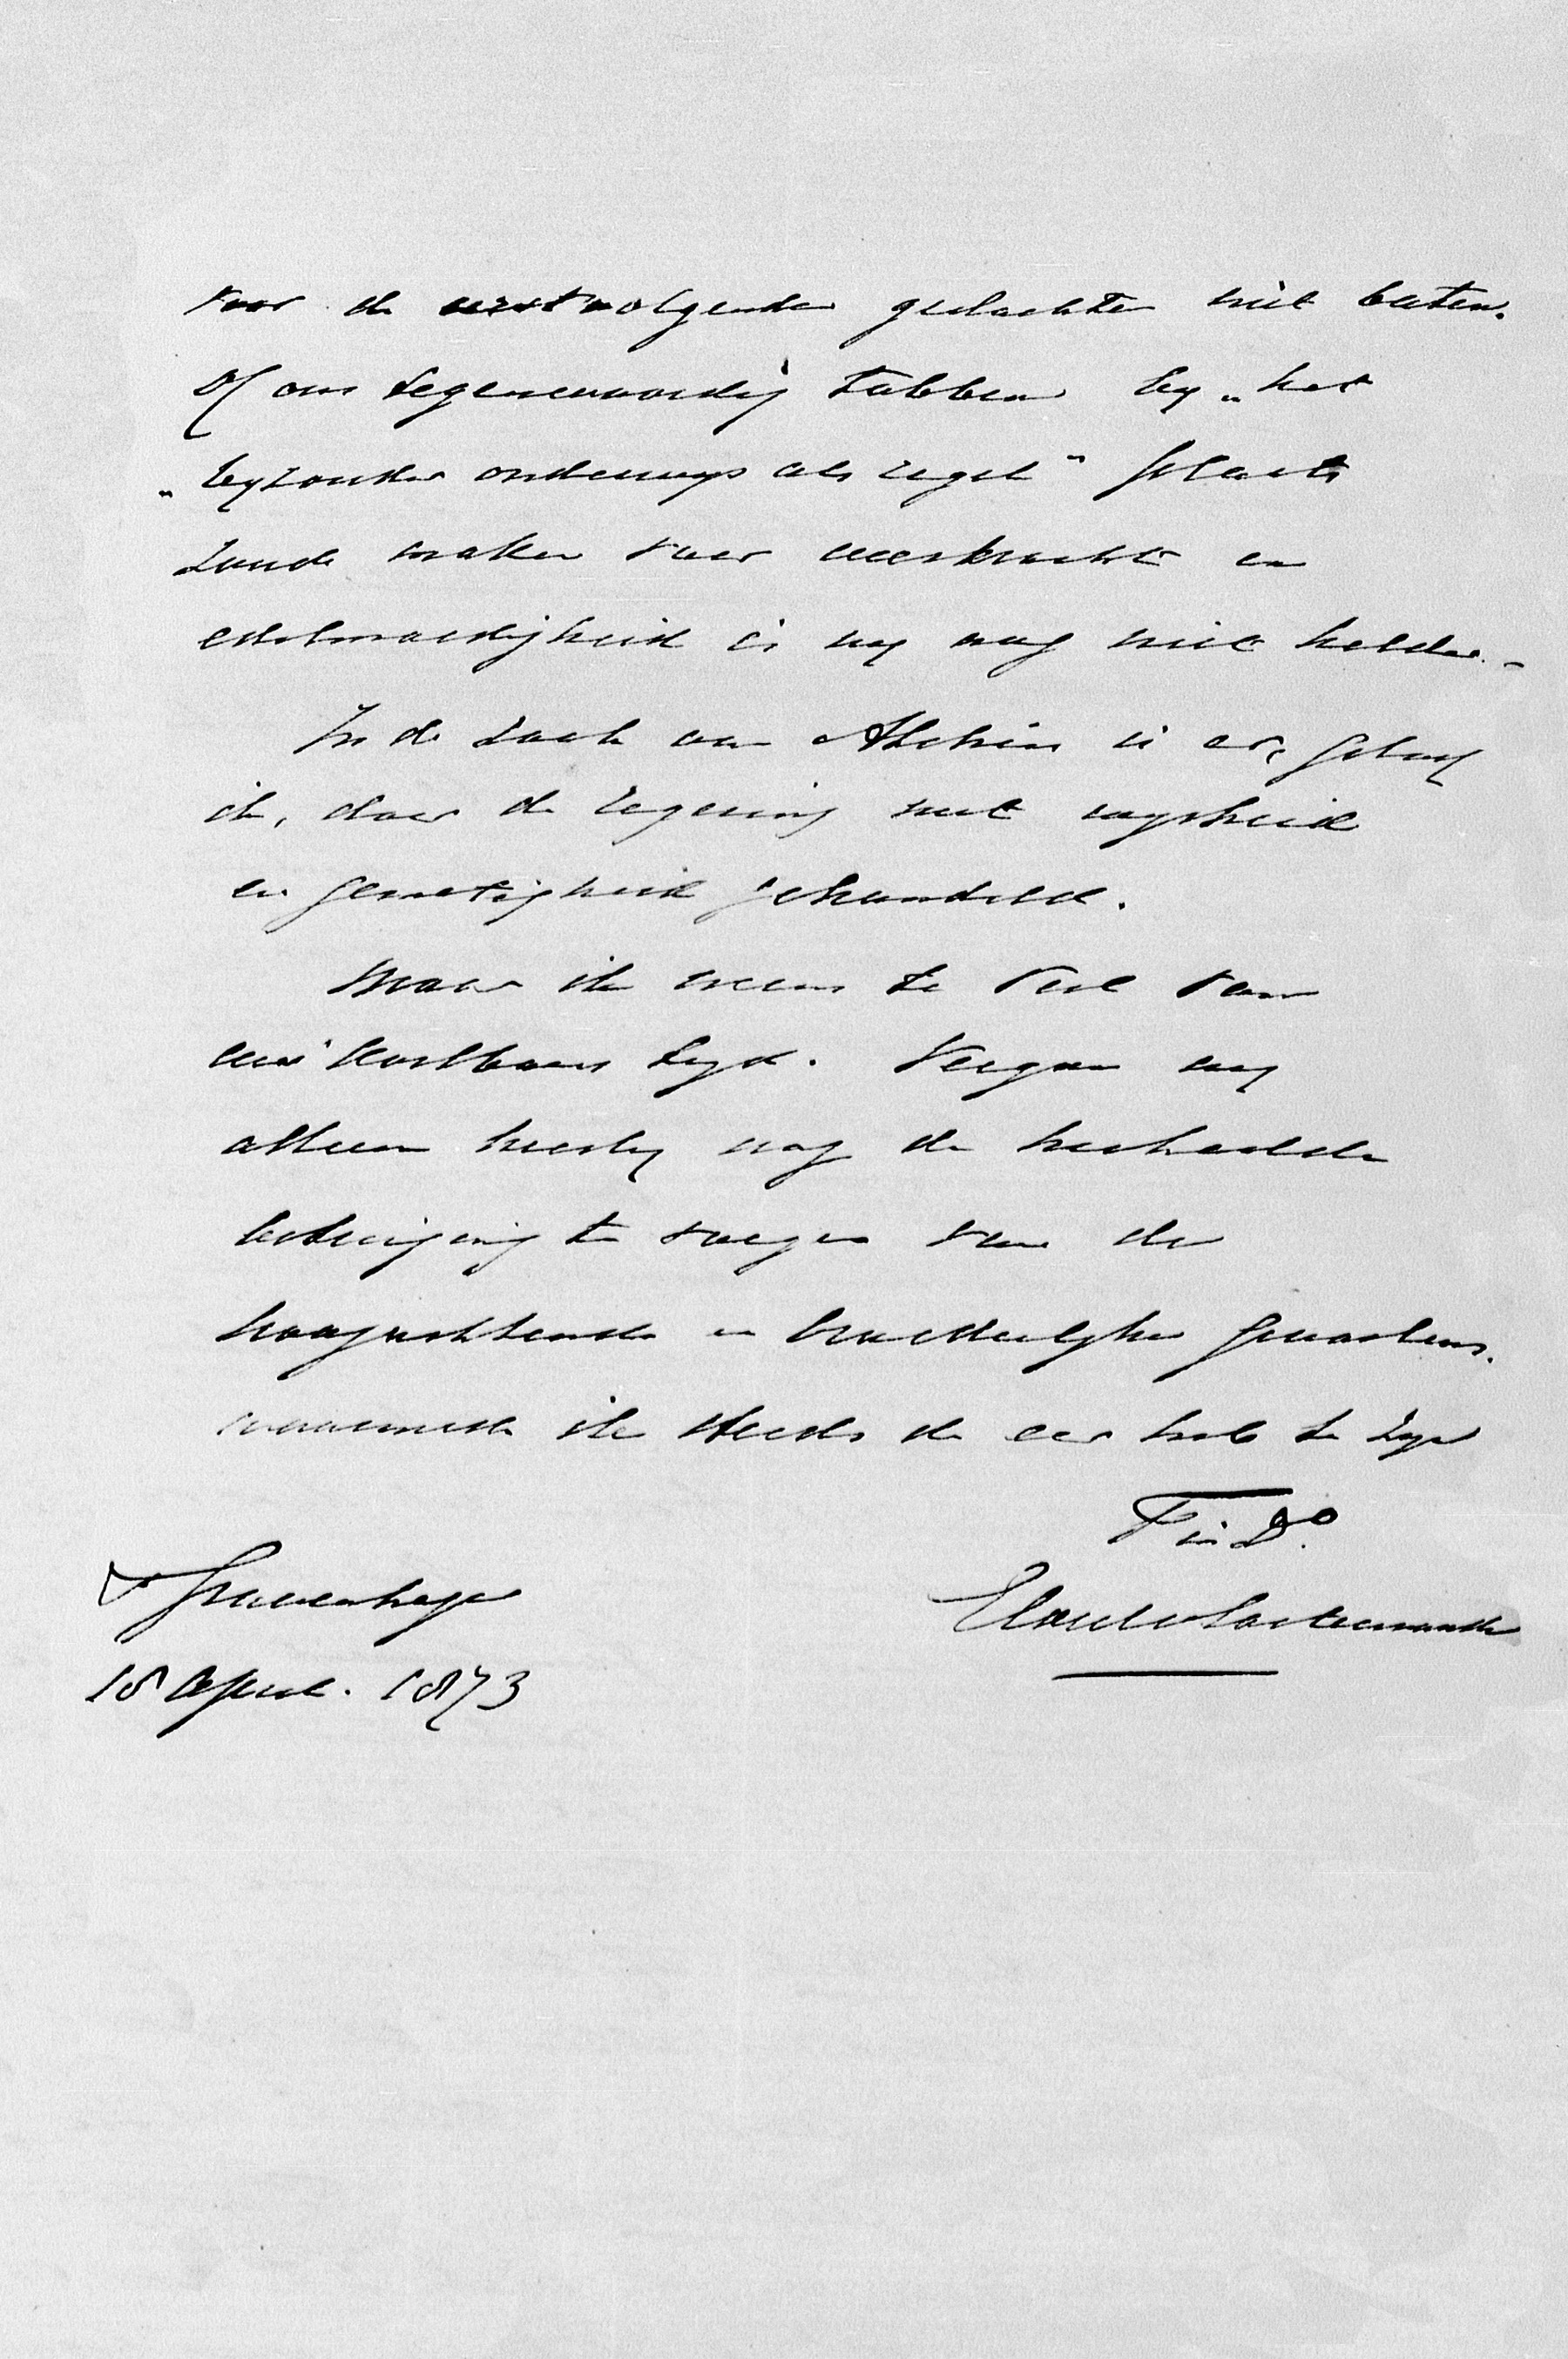 voor de eerstvolgende geslachten niet baten.
Of ons tegenwoordig tobben by „het
„byzonder onderwys als regel" plaats
zoude maken voor veerkracht en
edelmoedigheid is my nog niet helder. -
In de zaak van Atchin is er, geloof
ik, door de regering met wysheid
en gematigheid gehandeld.
Maar ik neem te veel van
uw kostbaren tyd. Vergun my
alleen hierby nog de herhaalde
betuiging te voegen van de
hoogachtende en broederlyke gevoelens.
waarmede ik steeds de eer heb te zyn
T. in D.º
's Gravenhage
18 April. 1873